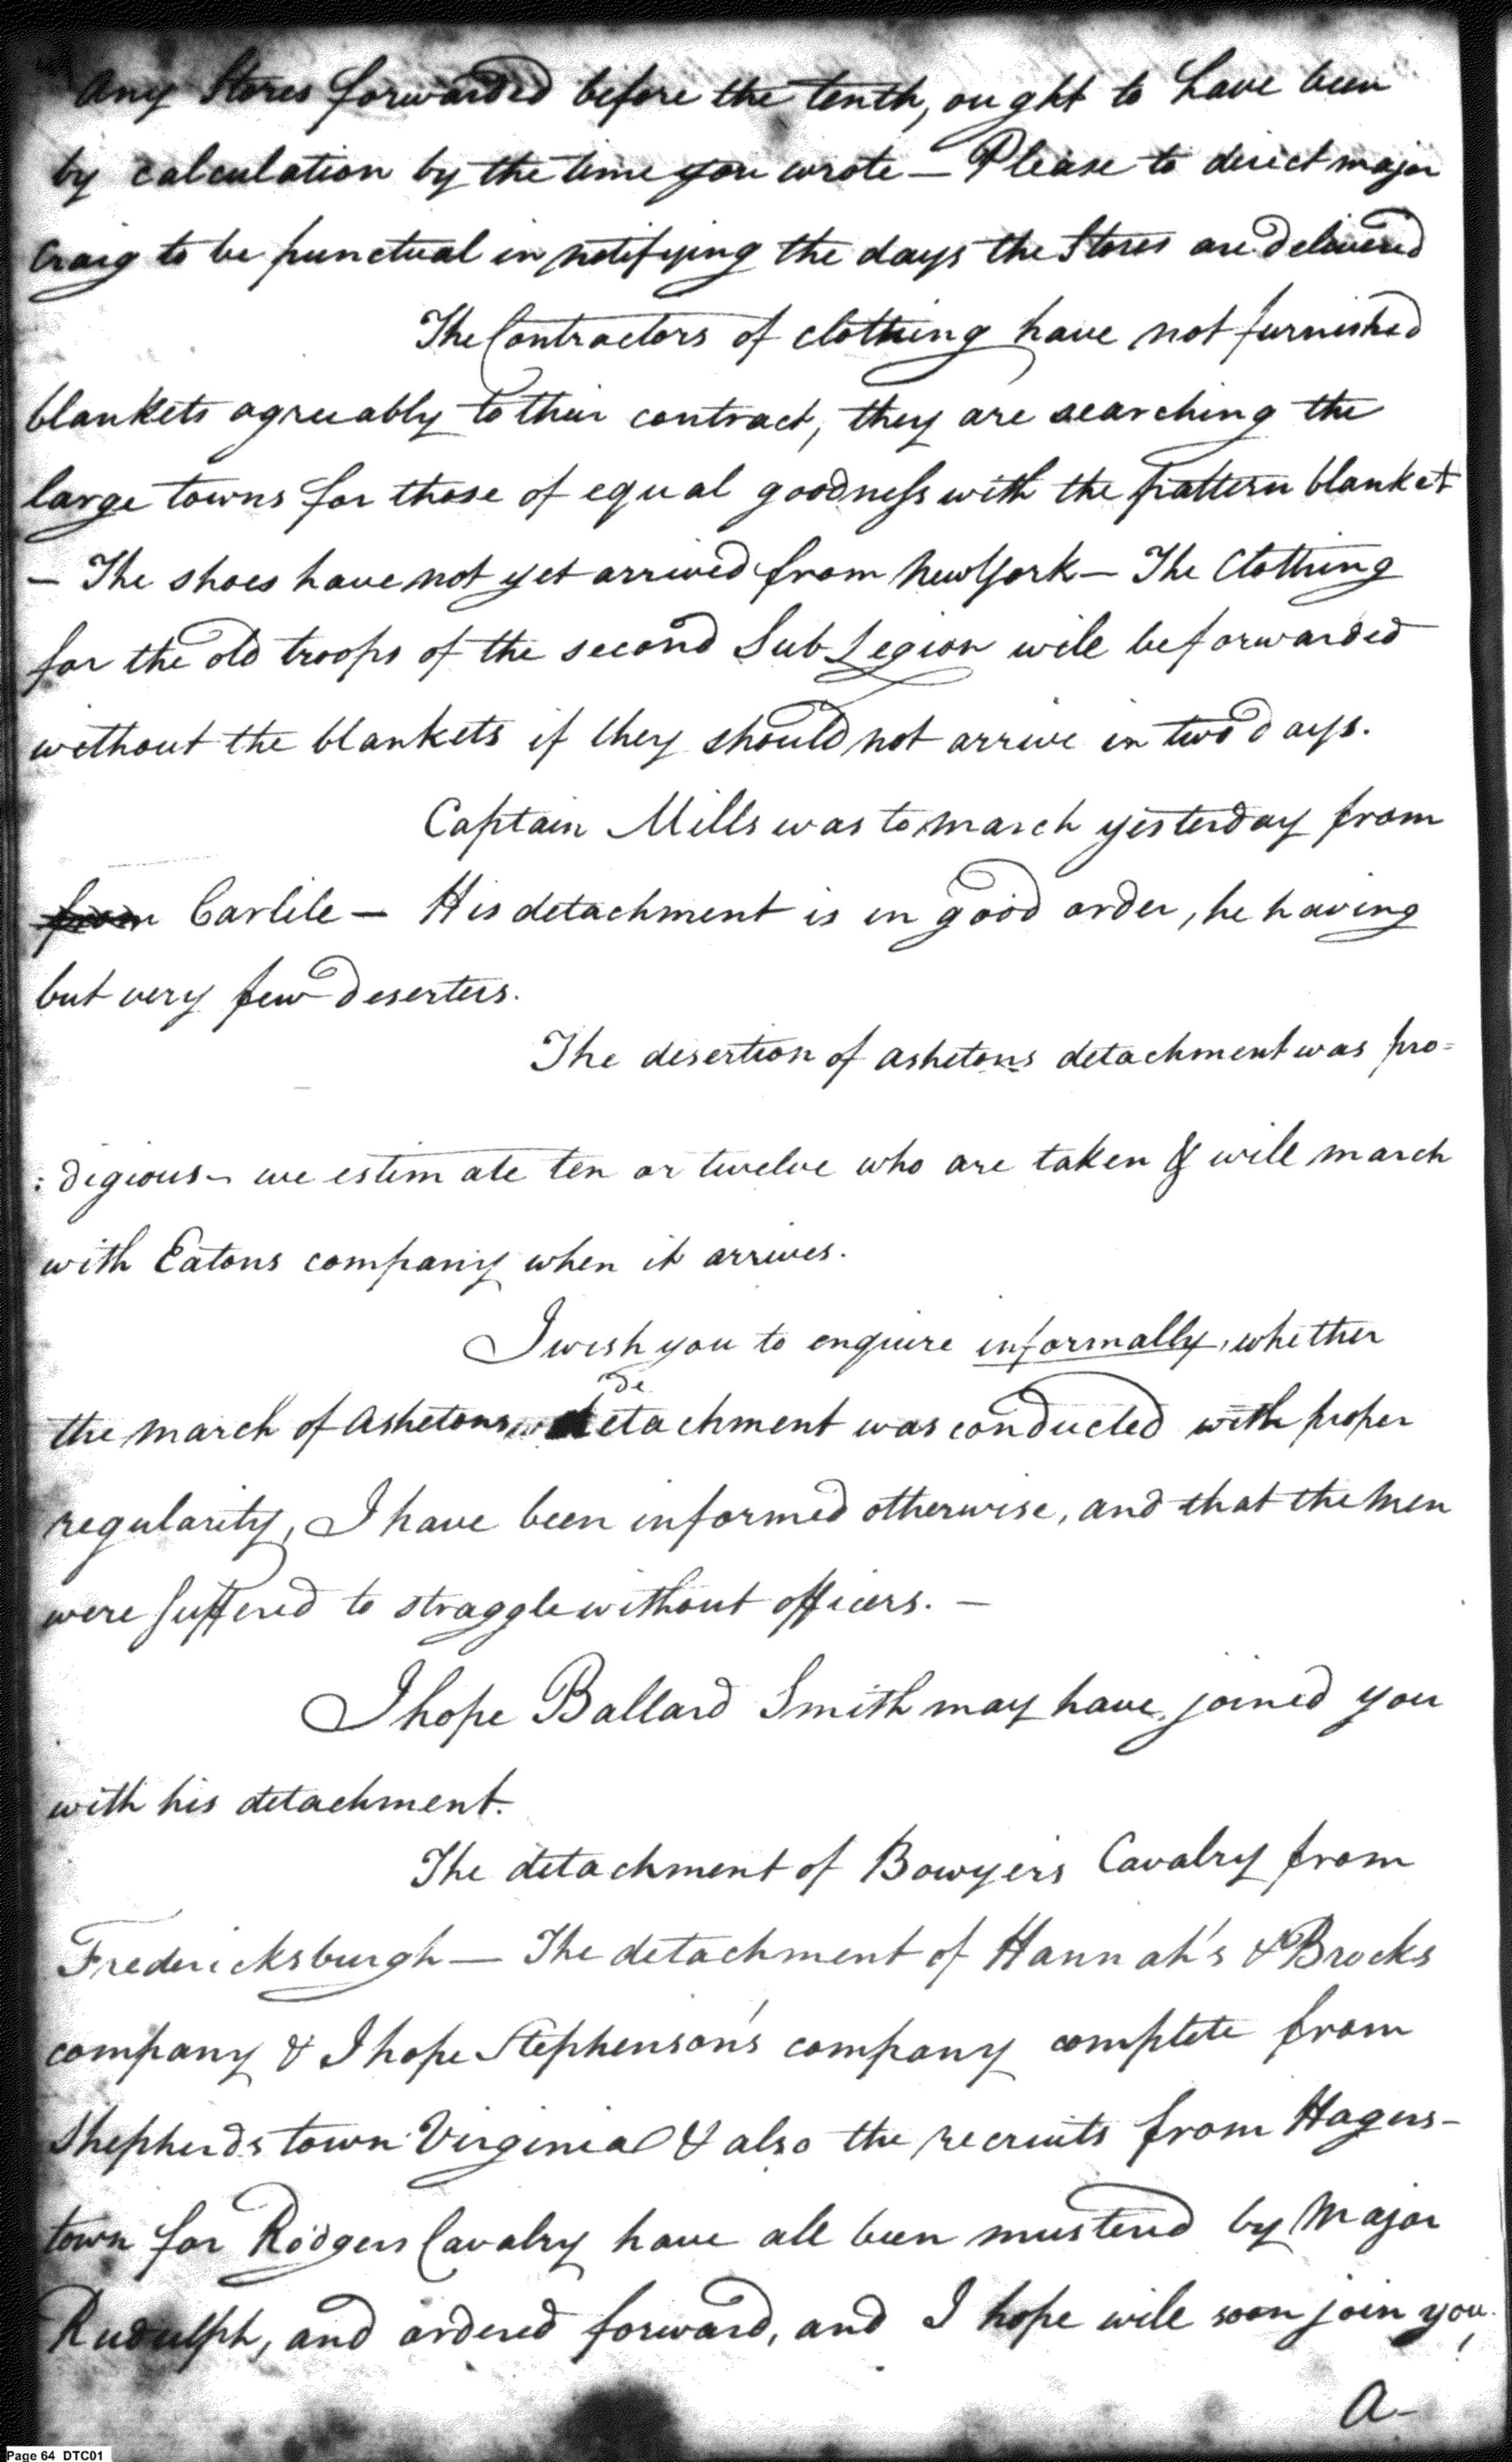 any Stores forwarded before the tenth, ought to have been
by calculation by the time you wrote — Please to direct major
Craig to be punctual in notifying the days the Stores are delivered
The Contractors of clothing have not furnished
blankets agreeably to their contract, they are searching the
large towns for those of equal goodness with the pattern blanket
— The shoes have not yet arrived from New York — The Clothing
for the old troops of the second Sub Legion will be forwarded
without the blankets if they should not arrive in two days.
Captain Mills was to march yesterday from
from Carlile — His detachment is in good order, he having
but very few deserters.
The desertion of Ashetons detachment was pro=
:digious — we estimate ten or twelve who are taken & will march
with Eatons company when it arrives.
I wish you to enquire informally, whether
de
the march of Ashetons detachment was conducted with proper
regularity, I have been informed otherwise, and that the men
were suffered to straggle without officers. —
I hope Ballard Smith may have joined you
with his detachment.
The detachment of Bowyers Cavalry from
Fredericksburgh — The detachment of Hannah's & Brocks
company & I hope Stephenson's company complete from
Shepherdstown Virginia & also the recruits from Hagers-
town for Rodgers Cavalry have all been mustered by Major
Rudulph, and ordered forward, and I hope will soon join you.
a-
Page 64 DTC01